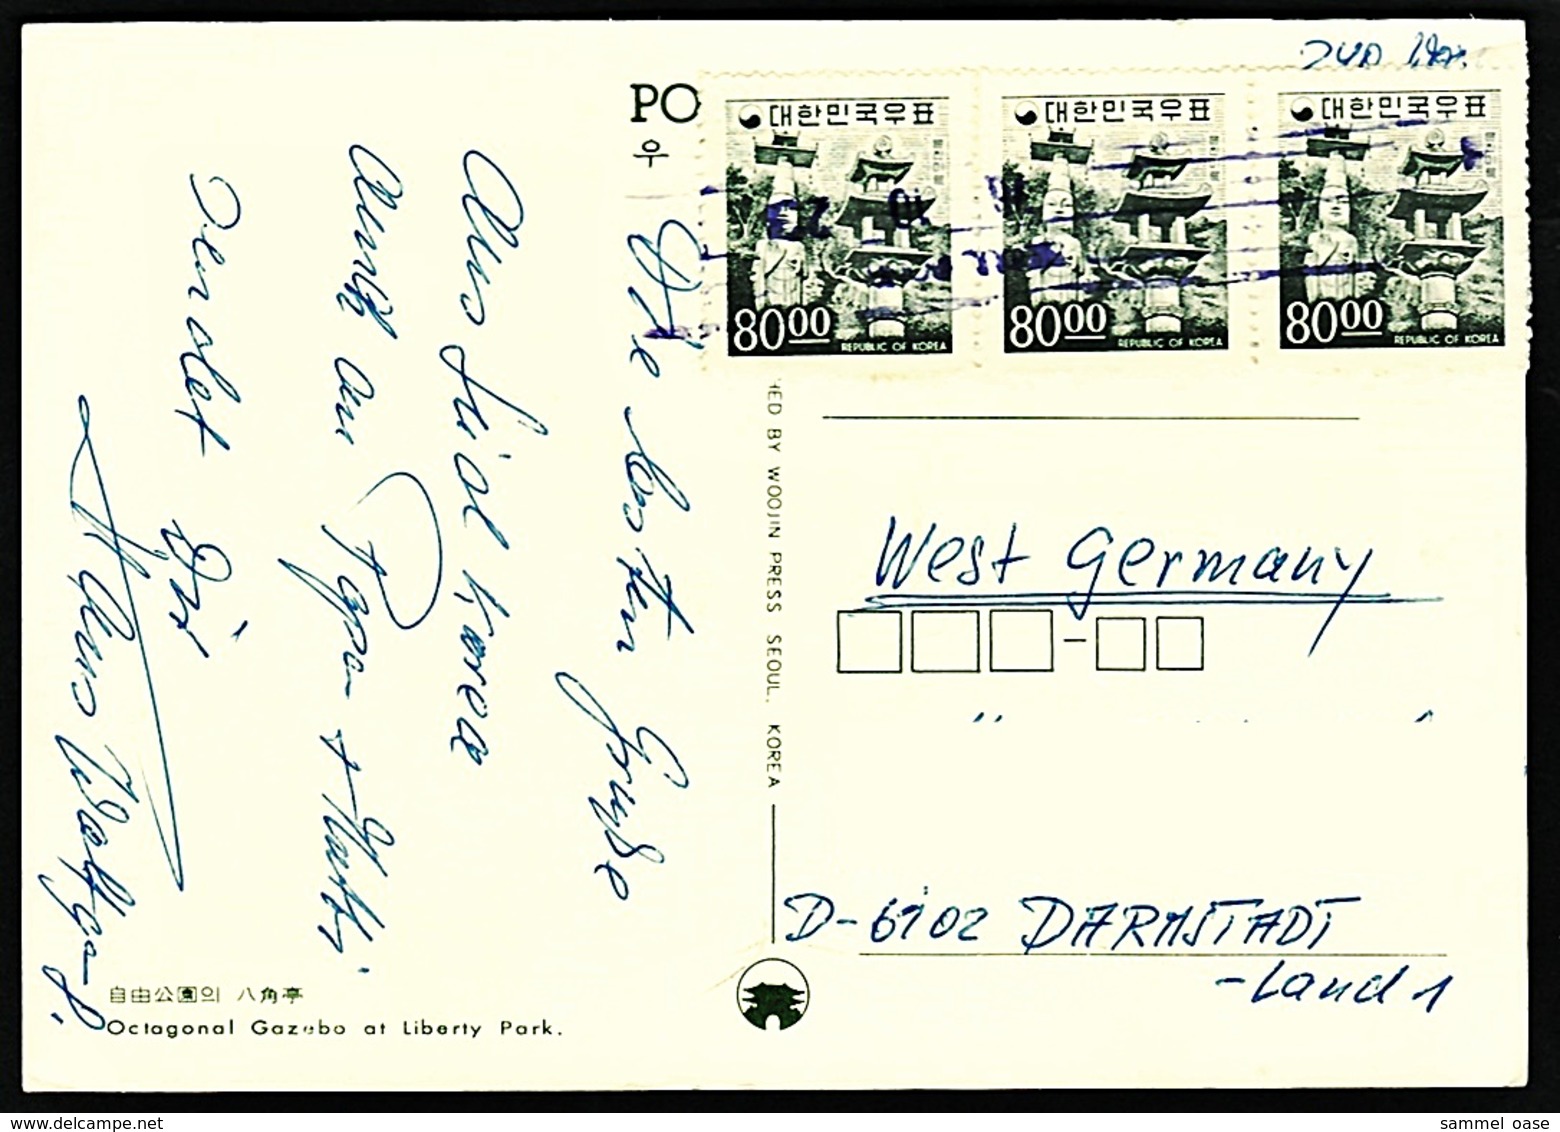 PO
우
대한민국우표
80 00
REPUBLIC OF KOREA
대한민국우표
80 00
REPUBLIC OF KOREA
대한민국우표
80 00
REPUBLIC OF KOREA
Die besten Grüße
Aus Seoul Korea
Auch an Papa + Mutti
Sendet Dir
Hans Wolfgang.
HED BY WOOJIN PRESS SEOUL, KOREA
West Germany
D-6102 DARMSTADT
-Land 1
自由公園의 八角亭
Octagonal Gazebo at Liberty Park.
sammel_oase